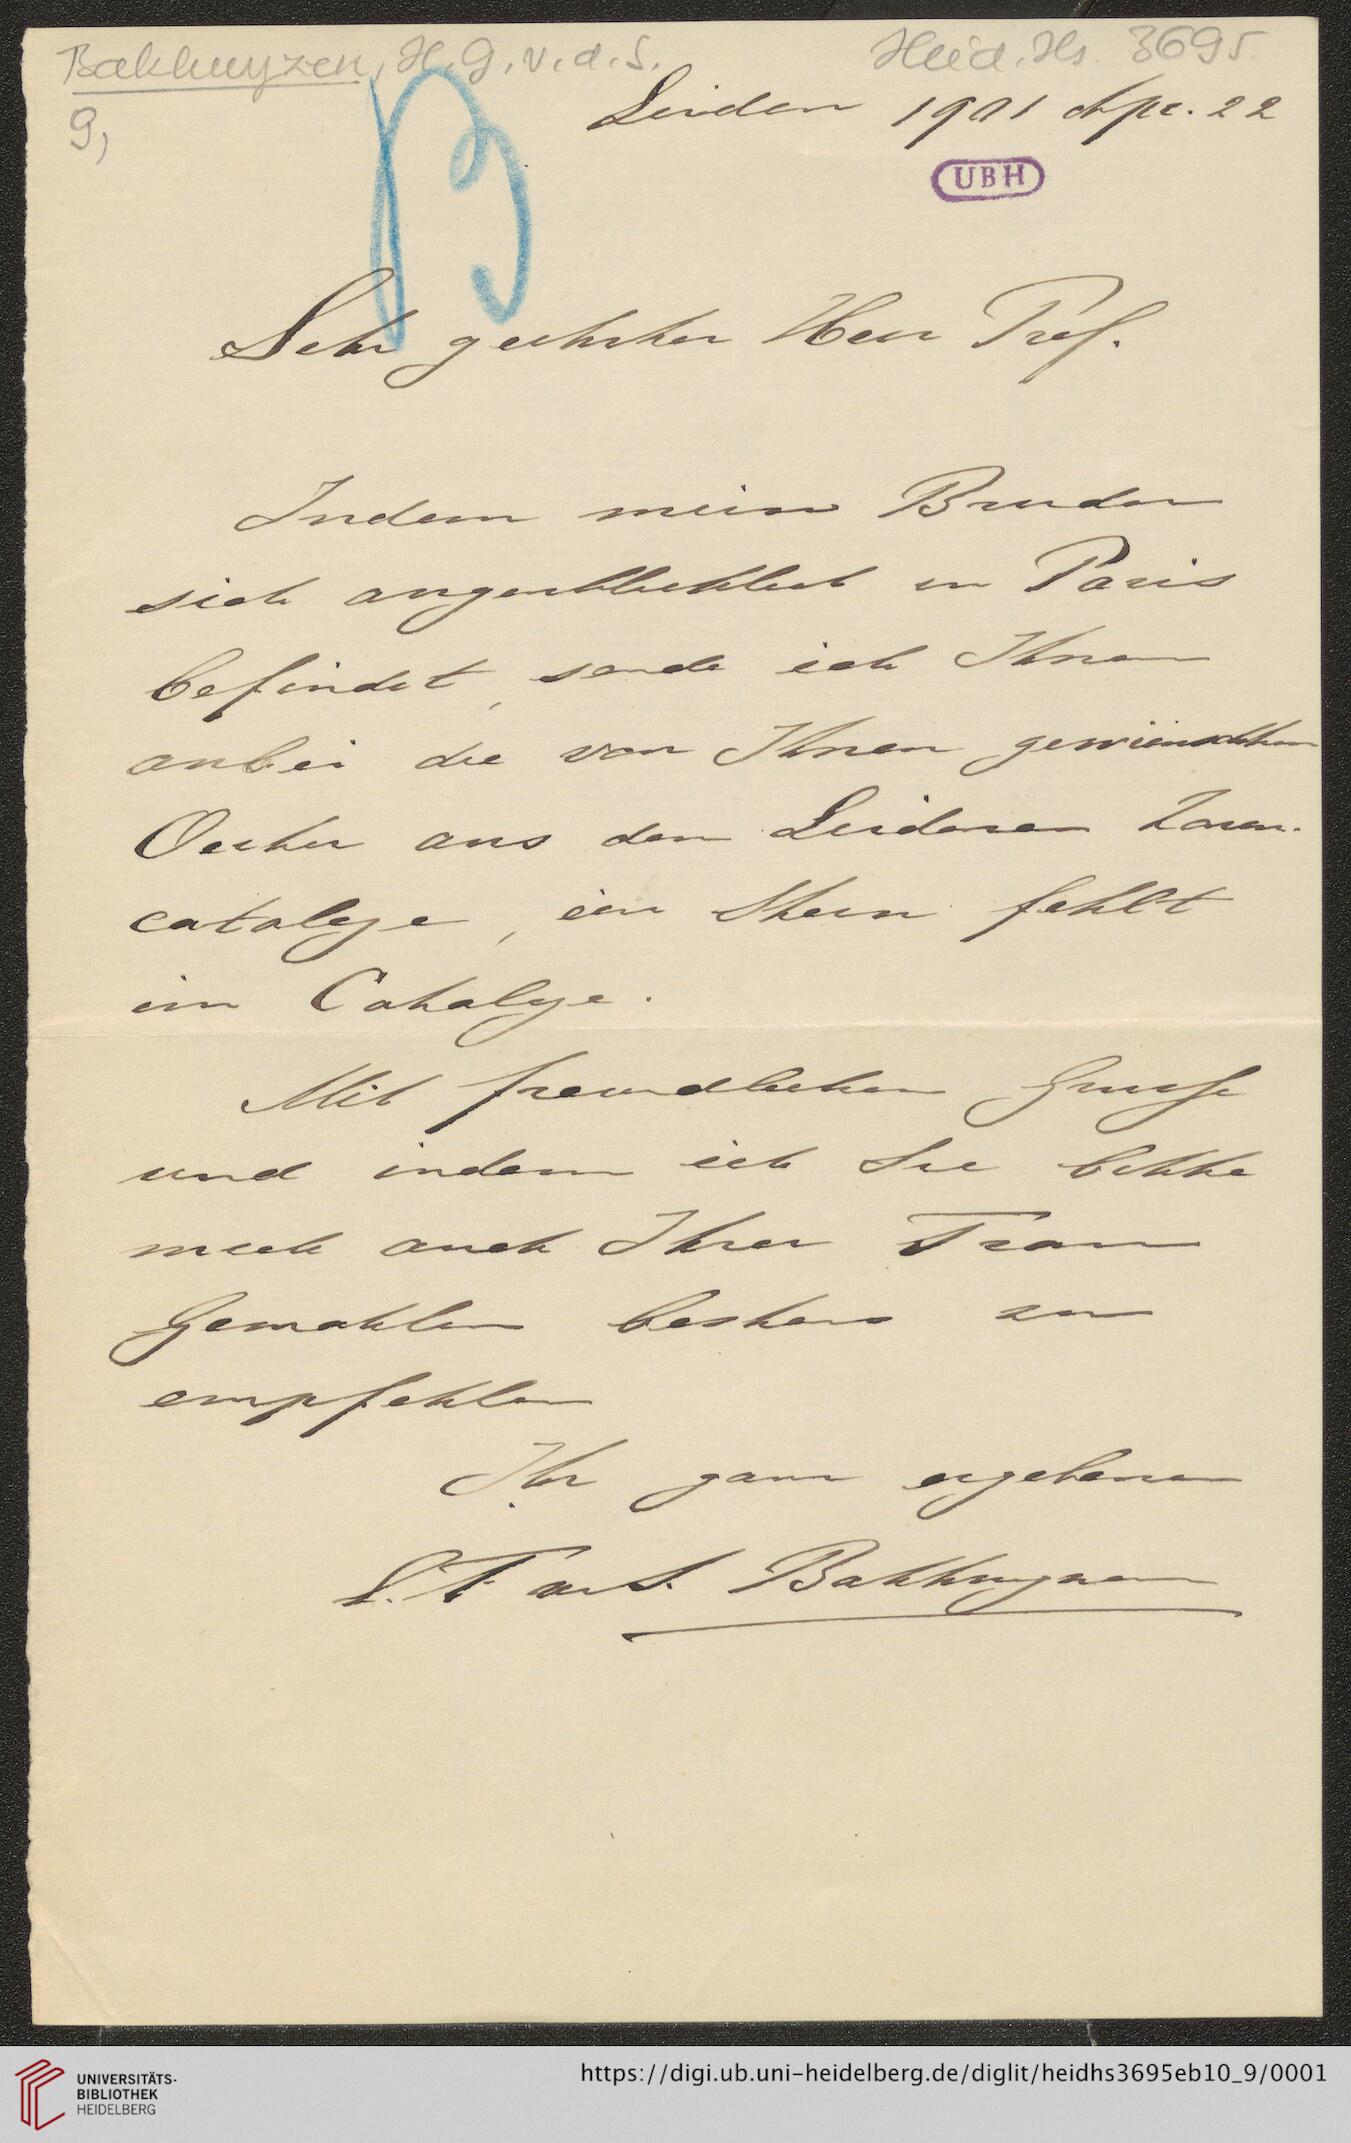 Bakhuyzen, H. G. v. d. S.
Heid. Hs. 3695
9,
B
Leiden 1901 Apr. 22
UBH
Sehr geehrter Herr Prof.
Indem mein Bruder
sich augenblicklich in Paris
befindet, sende ich Ihnen
anbei die von Ihnen gewünschten
Oerter aus dem Leidener Zonen-
cataloge, ein Stern fehlt
im Cataloge.
Mit freundlichem Grusse
und indem ich Sie bitte
mich auch Ihrer Frau
Gemahlin bestens zu
empfehlen
Ihr ganz ergebener
E. F. v. d. S. Bakhuyzen
UNIVERSITÄTS-
BIBLIOTHEK
HEIDELBERG
https://digi.ub.uni-heidelberg.de/diglit/heidhs3695eb10_9/0001